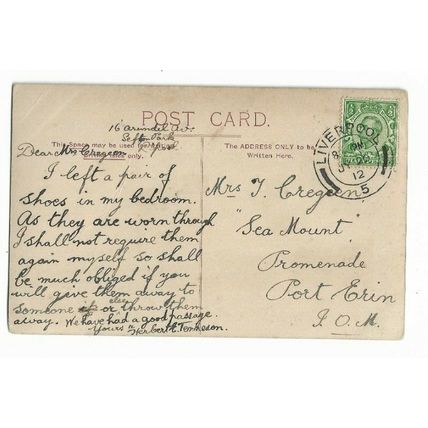 16 Arundel Av.
Seft. Park
L'pool
POST CARD.
This Space may be used for
Inland only.
The ADDRESS ONLY to be
Written Here.
Dear Mrs Cregeen
I left a pair of
shoes in my bedroom.
As they are worn through
I shall not require them
again myself so shall
be much obliged if you
will give them away to
someone else or throw them
away. We have had a good passage.
Yours
Herbert
Mrs T. Cregeen
"Sea Mount"
Promenade
Port Erin
I.O.M.
LIVERPOOL
PM
12
5